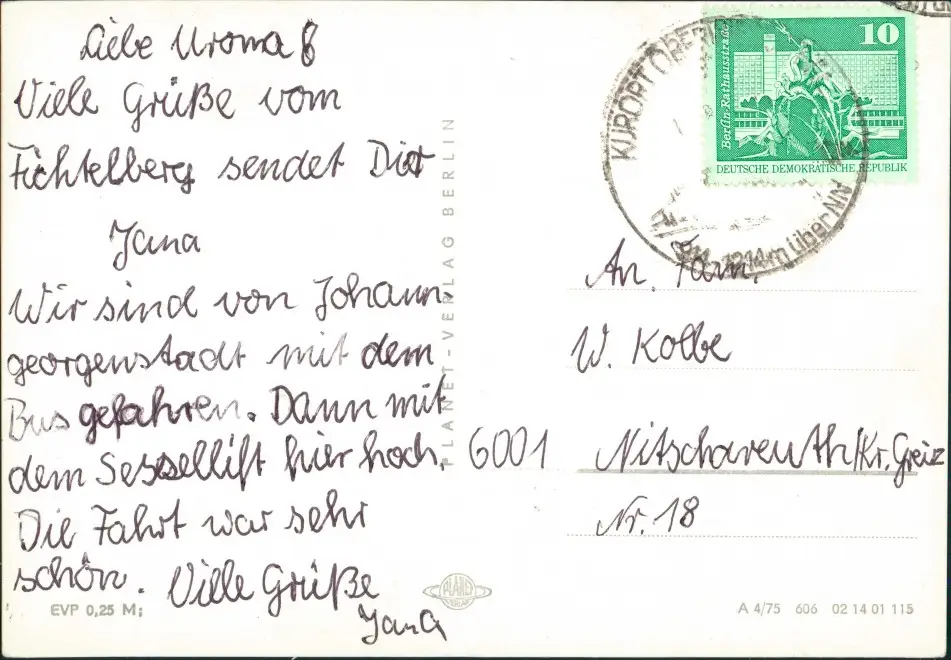 Liebe Uroma
Viele Grüße vom
Fichtelberg sendet Dir
Jana
Wir sind von Johann-
georgenstadt mit dem
Bus gefahren. Dann mit
dem Sessellift hier hoch.
Die Fahrt war sehr
schön. Viele Grüße
Jana
EVP 0,25 M;
PLANET-VERLAG BERLIN
PLANET
VERLAG
KURORT OBER
1214 m über NN
10
Berlin, Rathausstraße
DEUTSCHE DEMOKRATISCHE REPUBLIK
An. Fam.
W. Kolbe
6001 Nitschareuth/Kr. Greiz
Nr. 18
A 4/75 606 02 14 01 115